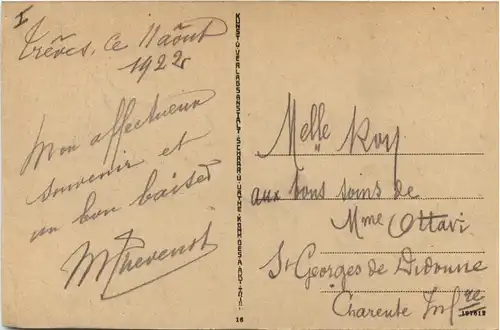 I
Trêves, ce 11 août
1922
Mon affectueux
souvenir et
un bon baiser
MThevenot
KUNSTVERLAGSANSTALT SCHAAR & DATHE · KOMM.-GES. A. AKT.
16
Melle Roy
aux bons soins de
Mme Ottavi
St Georges de Didonne
Charente Infre